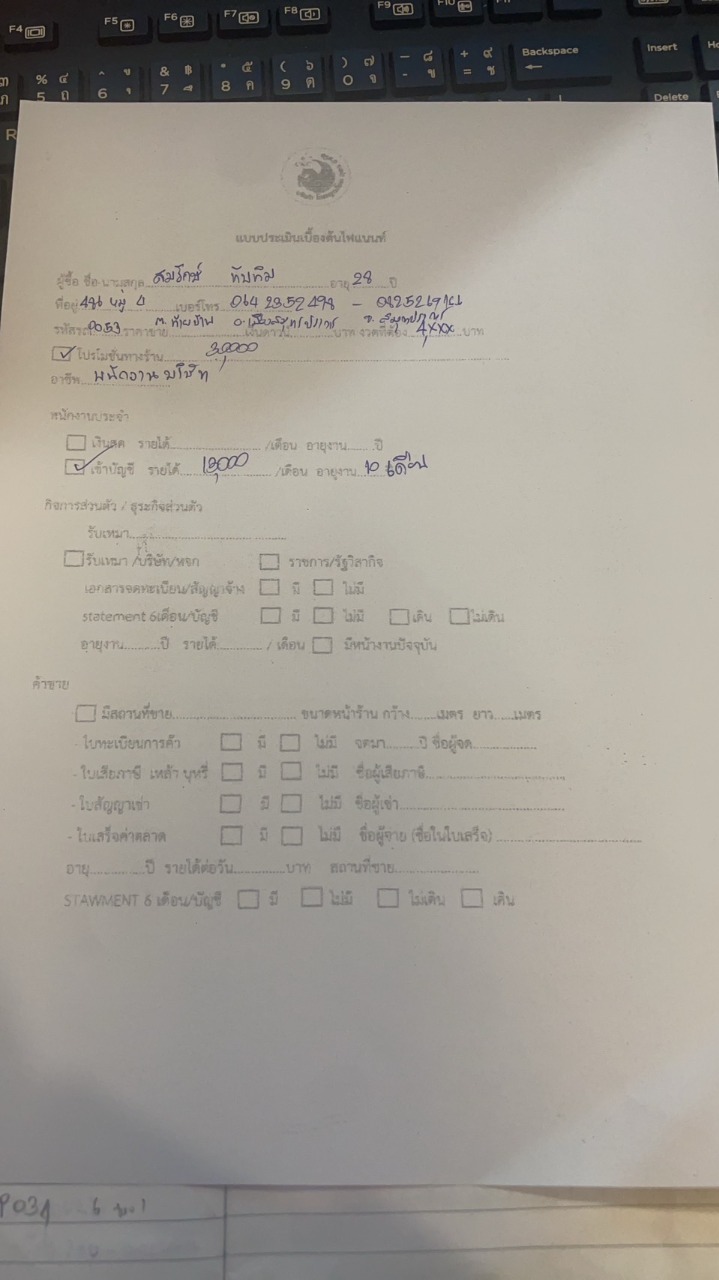 F4 F5 F6 F7 F8 F9 F10
% ๕ 5 ถ ^ 6 ุ & ฿ 7 ึ * ๕ 8 ค ( ๖ 9 ต ) ๗ 0 จ _ ๘ - ข + ๙ = ช Backspace Insert
Delete
R
แบบประเมินเบื้องต้นไฟแนนท์
ผู้ซื้อ ชื่อ-นามสกุล สมรักษ์ ทับทิม อายุ 28 ปี
ที่อยู่ หมู่ 4 เบอร์โทร 064 2352498 -
รหัสรถ P053 ราคาขาย ต. ท้ายบ้าน อ. เมืองสมุทรปราการ จ. สมุทรปราการ เงินดาวน์ บาท งวดที่ต้อง 4,xxx บาท
โปรโมชั่นทางร้าน 30,000
อาชีพ พนักงานบริษัท
พนักงานประจำ
เงินสด รายได้ /เดือน อายุงาน ปี
เข้าบัญชี รายได้ 13,000 /เดือน อายุงาน 10 เดือน
กิจการส่วนตัว / ธุระกิจส่วนตัว
รับเหมา
รับเหมา /บริษัท/หจก ราชการ/รัฐวิสากิจ
เอกสารจดทะเบียน/สัญญาจ้าง มี ไม่มี
statement 6เดือน/บัญชี มี ไม่มี เดิน ไม่เดิน
อายุงาน ปี รายได้ / เดือน มีหน้างานปัจจุบัน
ค้าขาย
มีสถานที่ขาย ขนาดหน้าร้าน กว้าง เมตร ยาว เมตร
- ใบทะเบียนการค้า มี ไม่มี จดมา ปี ชื่อผู้จด
- ใบเสียภาษี เหล้า บุหรี่ มี ไม่มี ชื่อผู้เสียภาษี
- ใบสัญญาเช่า มี ไม่มี ชื่อผู้เช่า
- ใบเสร็จค่าตลาด มี ไม่มี ชื่อผู้จ่าย (ชื่อในใบเสร็จ)
อายุ ปี รายได้ต่อวัน บาท สถานที่ขาย
STAWMENT 6 เดือน/บัญชี มี ไม่มี ไม่เดิน เดิน
P031 6